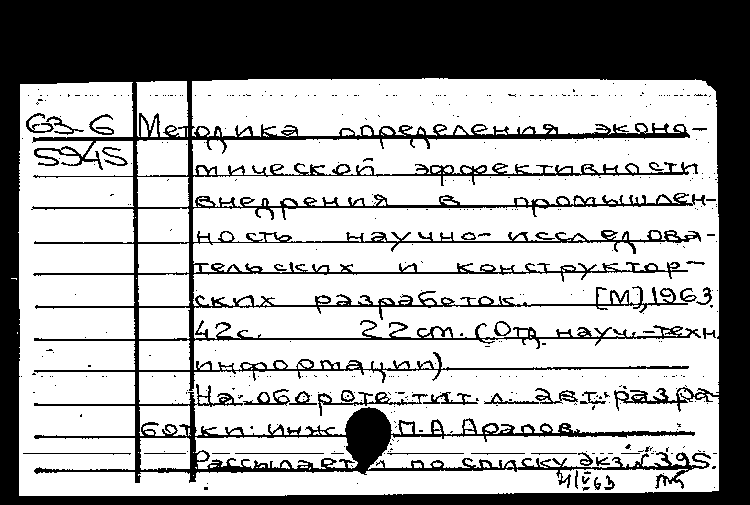 63-6 Методика определения эконо-
5945 мической эффективности
внедрения в промышлен-
ность научно-исследова-
тельских и конструктор-
ских разработок. [М], 1963.
42с. 22 cm. (Отд. науч.-техн.
информации).
На обороте тит. л. авт. разра-
ботки: инж. П.А. Арапов.
Рассылается по списку. Экз. № 395.